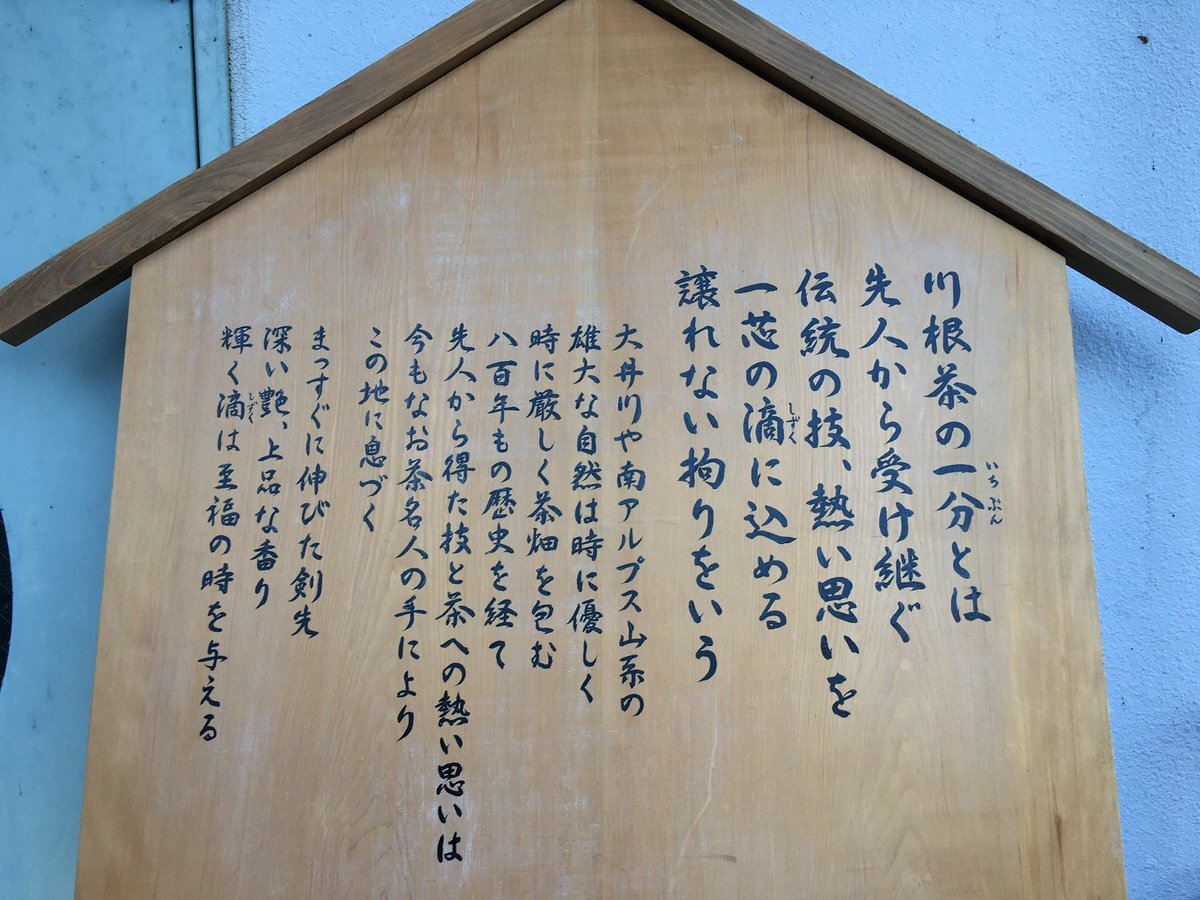 川根茶の一分とは
いちぶん
先人から受け継ぐ
伝統の技、熱い思いを
一芯の滴に込める
しずく
譲れない拘りをいう
大井川や南アルプス山系の
雄大な自然は時に優しく
時に厳しく茶畑を包む
八百年もの歴史を経て
先人から得た技と茶への熱い思いは
今もなお茶名人の手により
この地に息づく
まっすぐに伸びた剣先
深い艶、上品な香り
輝く滴は至福の時を与える
しずく